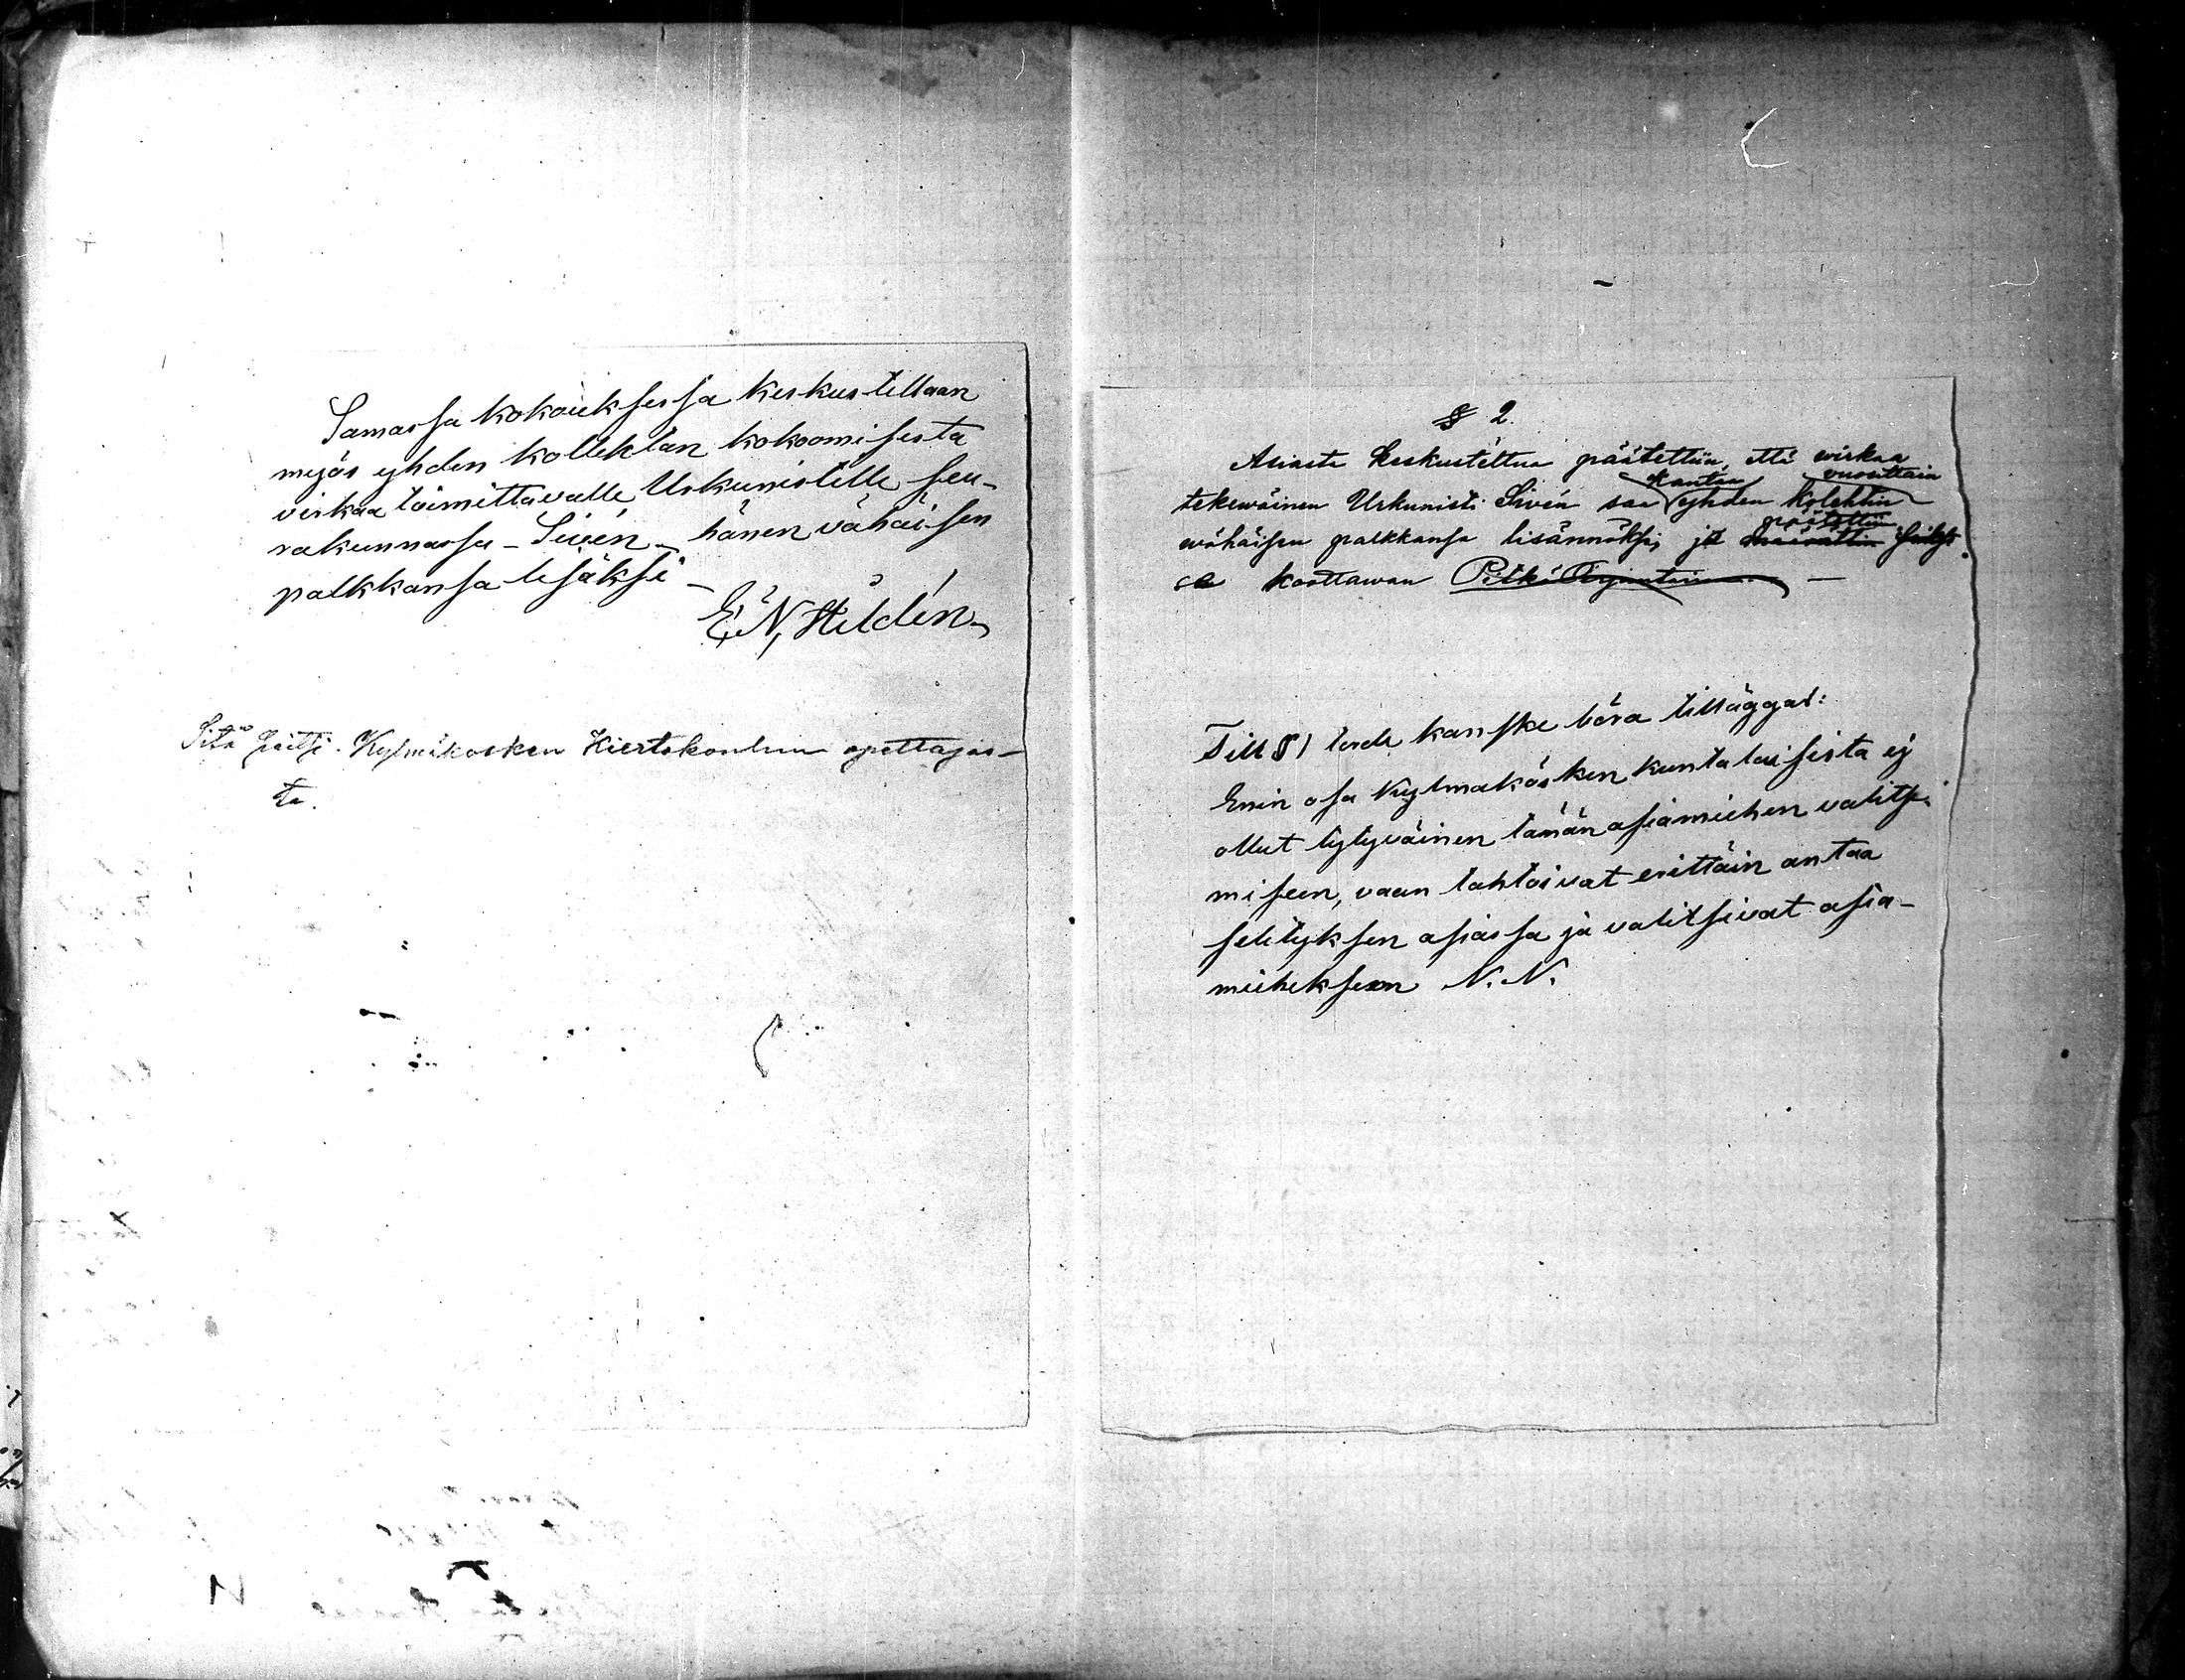 Samassa kokouksessa keskustellaan
myös yhden kollehtan kokoomisesta
virkaa toimittavalle Urkunistille seu-
rakunnassa - Sivén - hänen vähäisen
palkkansa lisäksi -
E. N. Heldén
Sitä päitsi. Kylmäkosken Kiertokoulun opettajas-
ta.
§ 2.
Asiasta keskusteltua päätettiin, että wirkaa
tekewäinen Urkunisti Sivén saa kantaa yhden kolehtin vuosittain
wähäisen palkkansa lisännöksi, ja päätettiin
koottawan
Till § 1 torde kanske böra tilläggas:
Enin osa Kylmäkosken kuntalaisista ej
ollut tytyväinen tämän asiamiehen valitse-
miseen, vaan tahtoivat erittäin antaa
selityksen asiassa ja valitsivat asia-
mieheksen N. N.